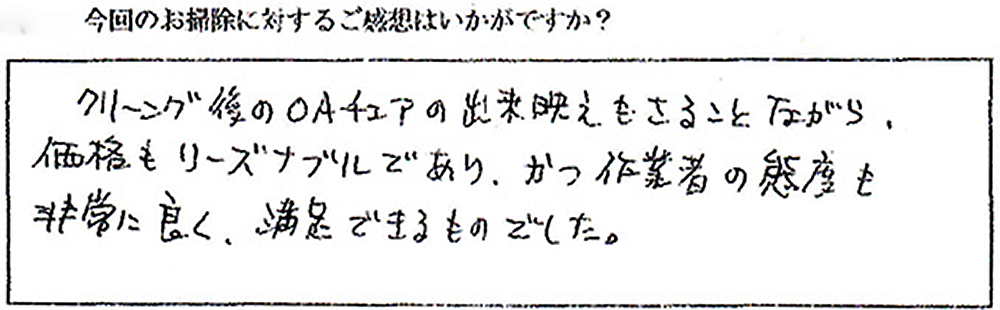 今回のお掃除に対するご感想はいかがですか？
クリーング後のOAチェアの出来映えもさることながら、
価格もリーズナブルであり、かつ作業者の態度も
非常に良く、満足できるものでした。